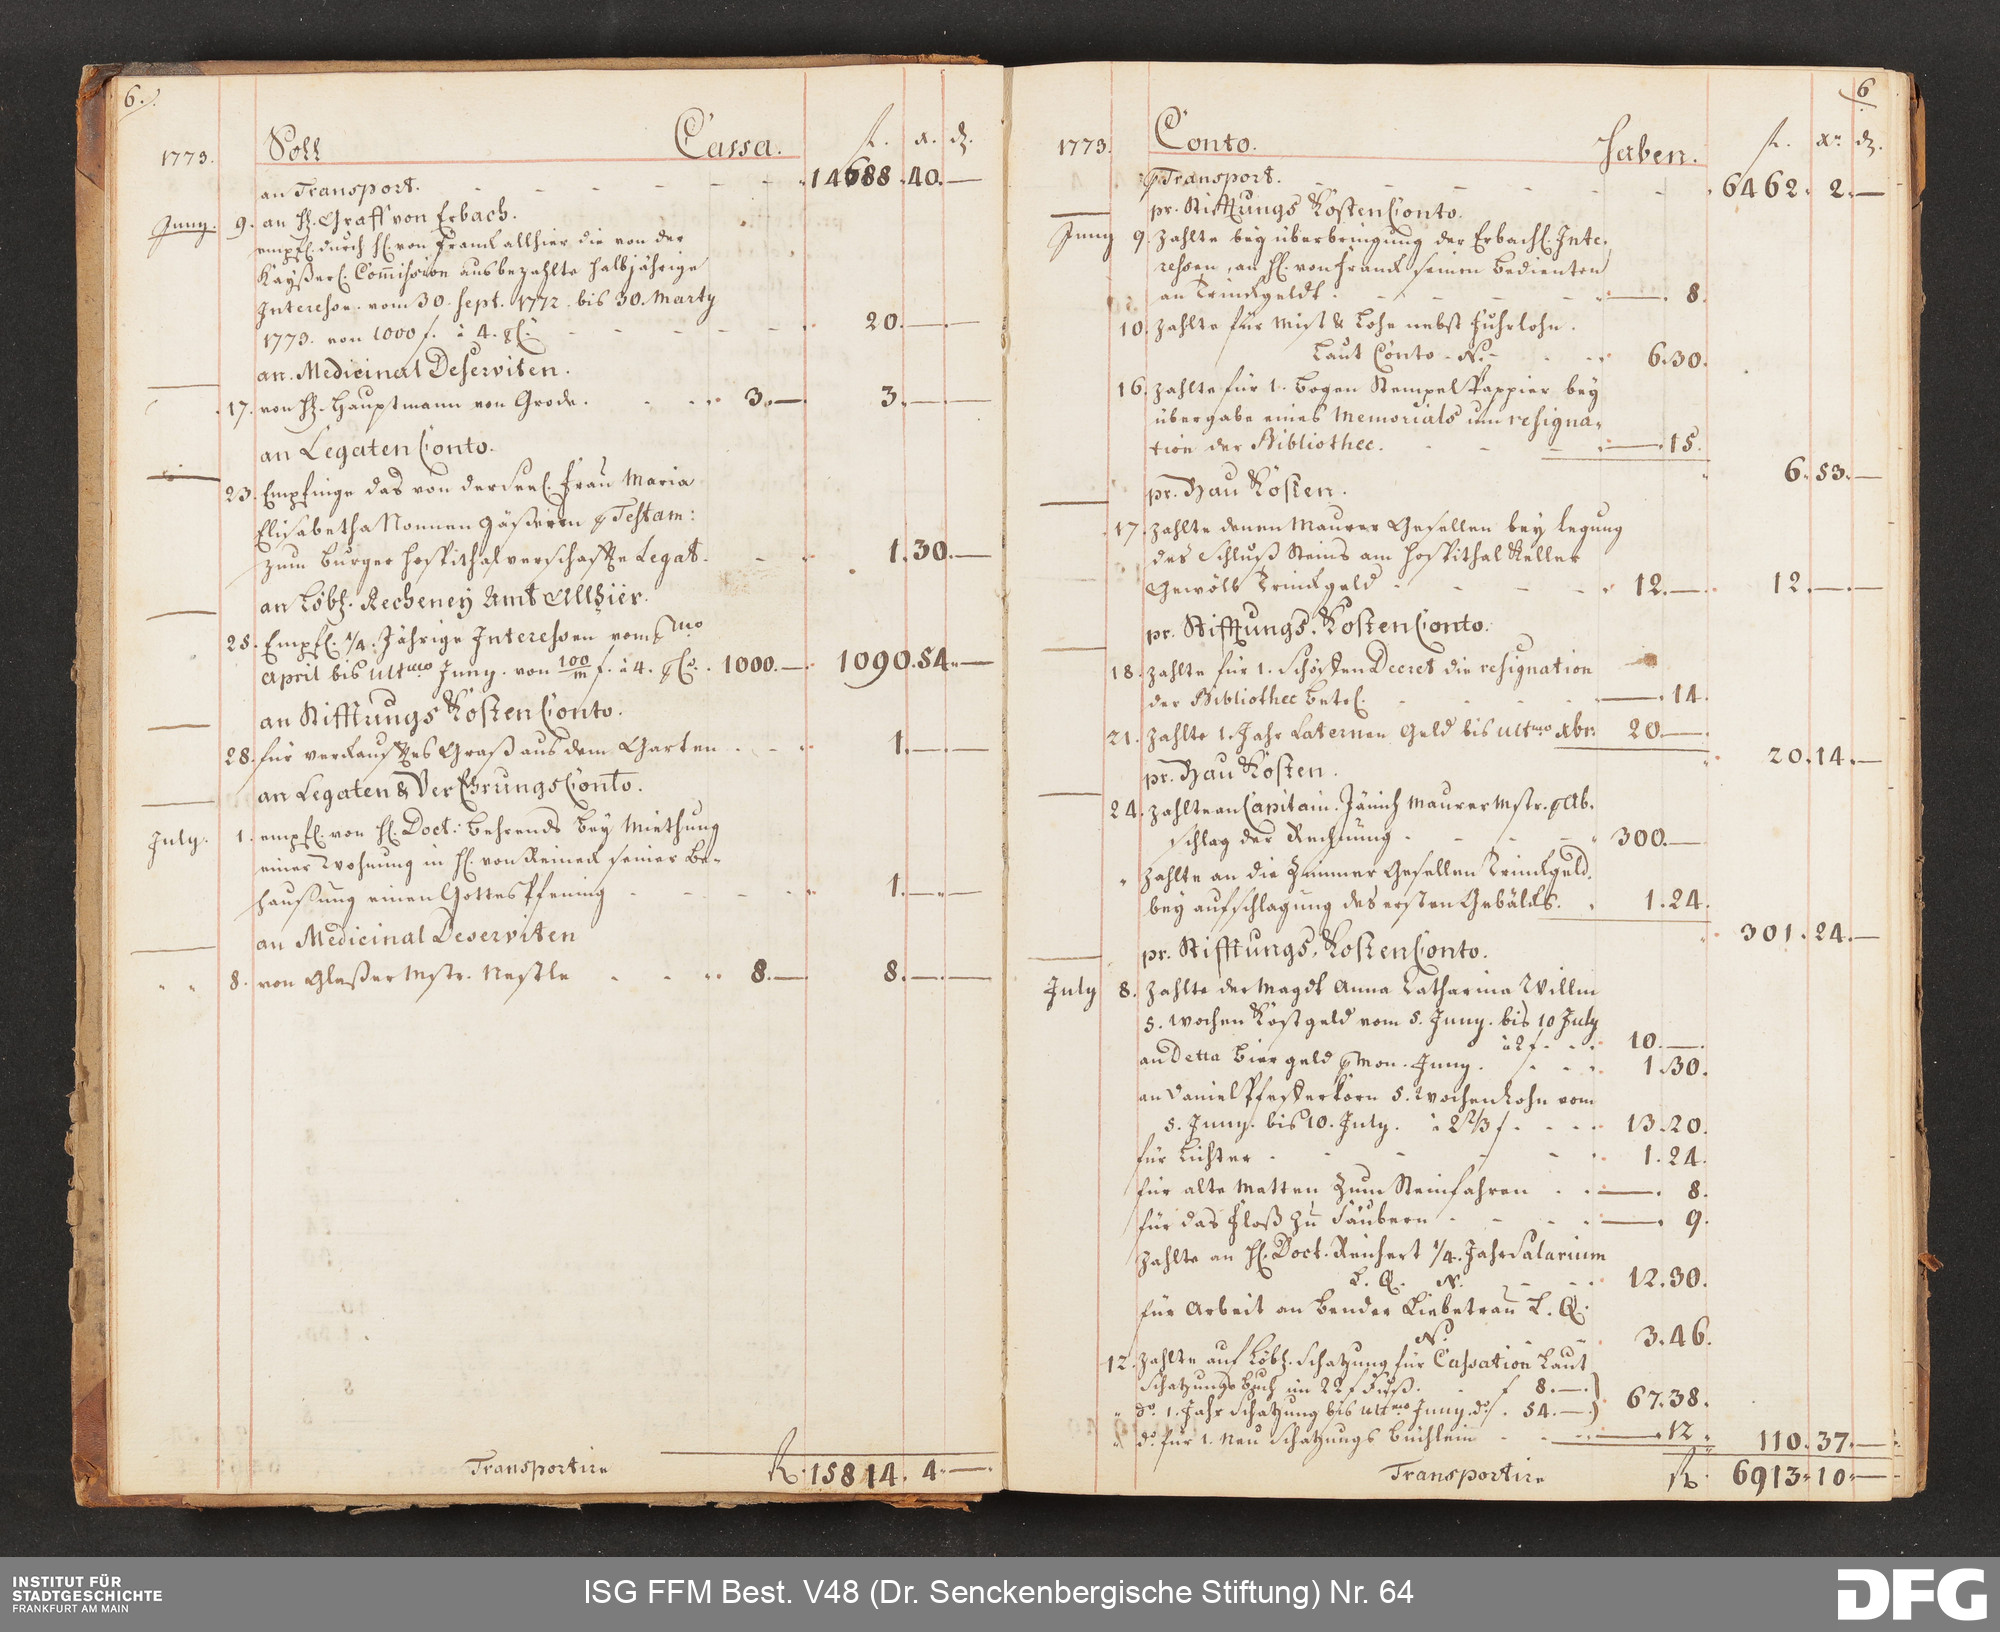 6.
1773. Soll Cassa. f. x. d.
an Transport. 14688. 40. —
Juny. 9. an H. Graff von Erbach.
empf. durch H. von Franck allhier die von der
Kayßerl. Commission ausbezahlte halbjährige
Interessen. vom 30. Sept. 1772. bis 30. Marty
1773. von 1000 f. à 4. pC. 20. — —
an. Medicinal Deserviten.
17. von H. Hauptmann von Grode. 3. — 3. — —
an Legaten Conto.
23. Empfinge das von der seel. Frau Maria
Elisabetha Nonnen Gäßerin p Testam:
zum Burger Hospithal verschaffte Legat. 1. 30. —
an Löbl. Recheney Amt Allhier.
25. Empf. 1/4. Jährige Interessen vom pmo
April bis ultmo Juny. von 100/m f. à 4. pCo. 1000. — 1090. 54. —
an Stifftungs Kosten Conto.
28. für verkaufftes Graß aus dem Garten 1. — —
an Legaten & Verehrungs Conto.
July. 1. empf. von H. Doct: Behrends bey Miethung
einer Wohnung in H. von Reineck seiner Be-
haußung einen Gottes Pfening 1. — —
an Medicinal Deserviten
8. von Glaßer Mstr. Nestle 8. — 8. — —
Transportire f. 15814. 4. —
6
1773. Conto. Haben. f. xr. d.
p Transport. 6462. 2. —
pr. Stifftungs Kosten Conto.
Juny 9. Zahlte bey überbringung der Erbach. Inte-
ressen, an H. von Franck seinen Bedienten
an Trinckgeldt. — 8.
10. Zahlte für Mist & Lohe nebst Fuhrlohn.
Laut Conto - N. 6. 30.
16. Zahlte für 1. Bogen Stempel Pappier bey
übergabe eines Memorials um resigna-
tion der Bibliothec. — 15.
6. 53. —
pr. Bau Kosten.
17. Zahlte denen Maurer Gesellen bey legung
des Schluß Steins am Hospithal Keller
Gewölb Trinckgeld 12. — 12. — —
pr. Stifftungs. Kosten Conto.
18. Zahlte für 1. Schöffen Decret die resignation
der Bibliothec betrl. — 14.
21. Zahlte 1. Jahr Laternen Geld bis ultmo Xbr. 20. —
20. 14. —
pr. Bau Kosten.
24. Zahlte an Capitain. Jänich Maurer Mstr. p Ab-
schlag der Rechnung 300. —
" Zahlte an die Zimmer Gesellen Trinckgeld
bey aufschlagung des ersten Gebälcks. 1. 24.
301. 24. —
pr. Stifftungs. Kosten Conto.
July 8. Zahlte der Magdt Anna Catharina Willin
5. Wochen Kostgeld vom 5. Juny. bis 10 July
à 2 f. 10. —
an Detta Biergeld p Mon. Juny. 1. 30.
an Daniel Pfefferkorn 5. Wochen Lohn vom
5. Juny. bis 10. July. à 2 2/3 f. 13. 20.
für Lichter 1. 24.
für alte Matten Zum Steinfahren — 8.
für das Floß zu säubern — 9.
Zahlte an H. Doct. Reichert 1/4. Jahr Salarium
L. Q. N. 12. 30.
für Arbeit an Bender Liebetrau L. Q.
N. 3. 46.
12. Zahlte auf Löbl. Schatzung für Cassation Laut
Schatzungs Buch im 22 f Fuß. f 8. —
" do. 1. Jahr Schatzung bis ultmo Juny. do. 54. — 67. 38.
" do. für 1. Neu Schatzungs Büchlein — 12
110. 37. —
Transportire f. 6913. 10. —
INSTITUT FÜR
STADTGESCHICHTE
FRANKFURT AM MAIN
ISG FFM Best. V48 (Dr. Senckenbergische Stiftung) Nr. 64
DFG